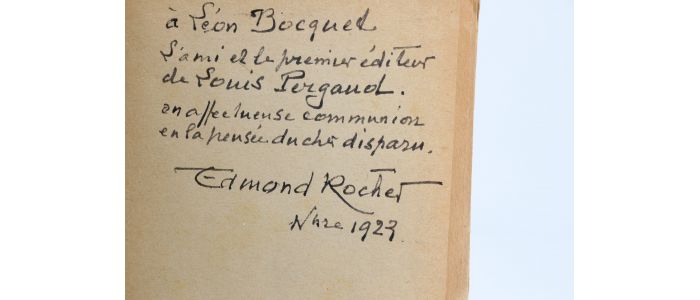 à Léon Bocquet
L'ami et le premier éditeur
de Louis Pergaud.
en affectueuse communion
en la pensée du cher disparu.
Edmond Rocher
Nbre 1923